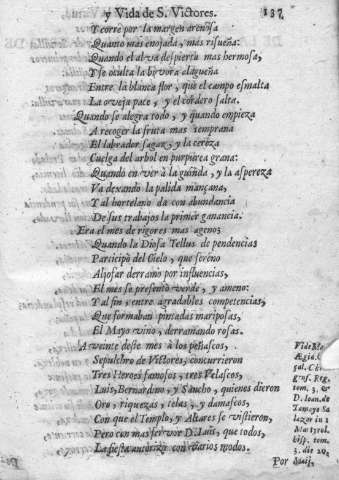 y Vida de S. Victores. 137
Y corre por la margen arenosa
Quanto mas enojada, mas risueña:
Quando el alva despierta mas hermosa,
Y se oculta la bivora alagueña
Entre la blanca flor, que el campo esmalta
La oveja pace, y el cordero salta.
Quando se alegra todo, y quando empieza
A recoger la fruta mas temprana
El labrador sagaz, y la cereza
Cuelga del arbol en purpurea grana:
Quando en ver à la guinda, y la aspereza
Va dexando la palida mançana,
Y al hortelano da con abundancia
De sus trabajos la primer ganancia.
Era el mes de rigores mas ageno;
Quando la Diosa Tellus de pendencias
Participò del Cielo, que sereno
Aljofar derramò por influencias,
El mes se presentò verde, y ameno:
Y al fin, entre agradables competencias,
Que formaban pintadas mariposas,
El Mayo vino, derramando rosas.
A veinte deste mes à los peñascos,
Sepulchro de Victores, concurrieron
Tres Heroes famosos, tres Velascos,
Luis, Bernardino, y Sancho, quienes dieron
Oro, riquezas, telas, y damascos,
Con que el Templo, y Altares se vistieron,
Pero con mas fervor D. Luis, que todos,
La fiesta autorizò con varios modos.
gus. Reg.
tom. 3. &
D. Ioan. de
Tamayo Sa
lazar in
Martyrol.
hisp. tom.
3. die 20.
Por